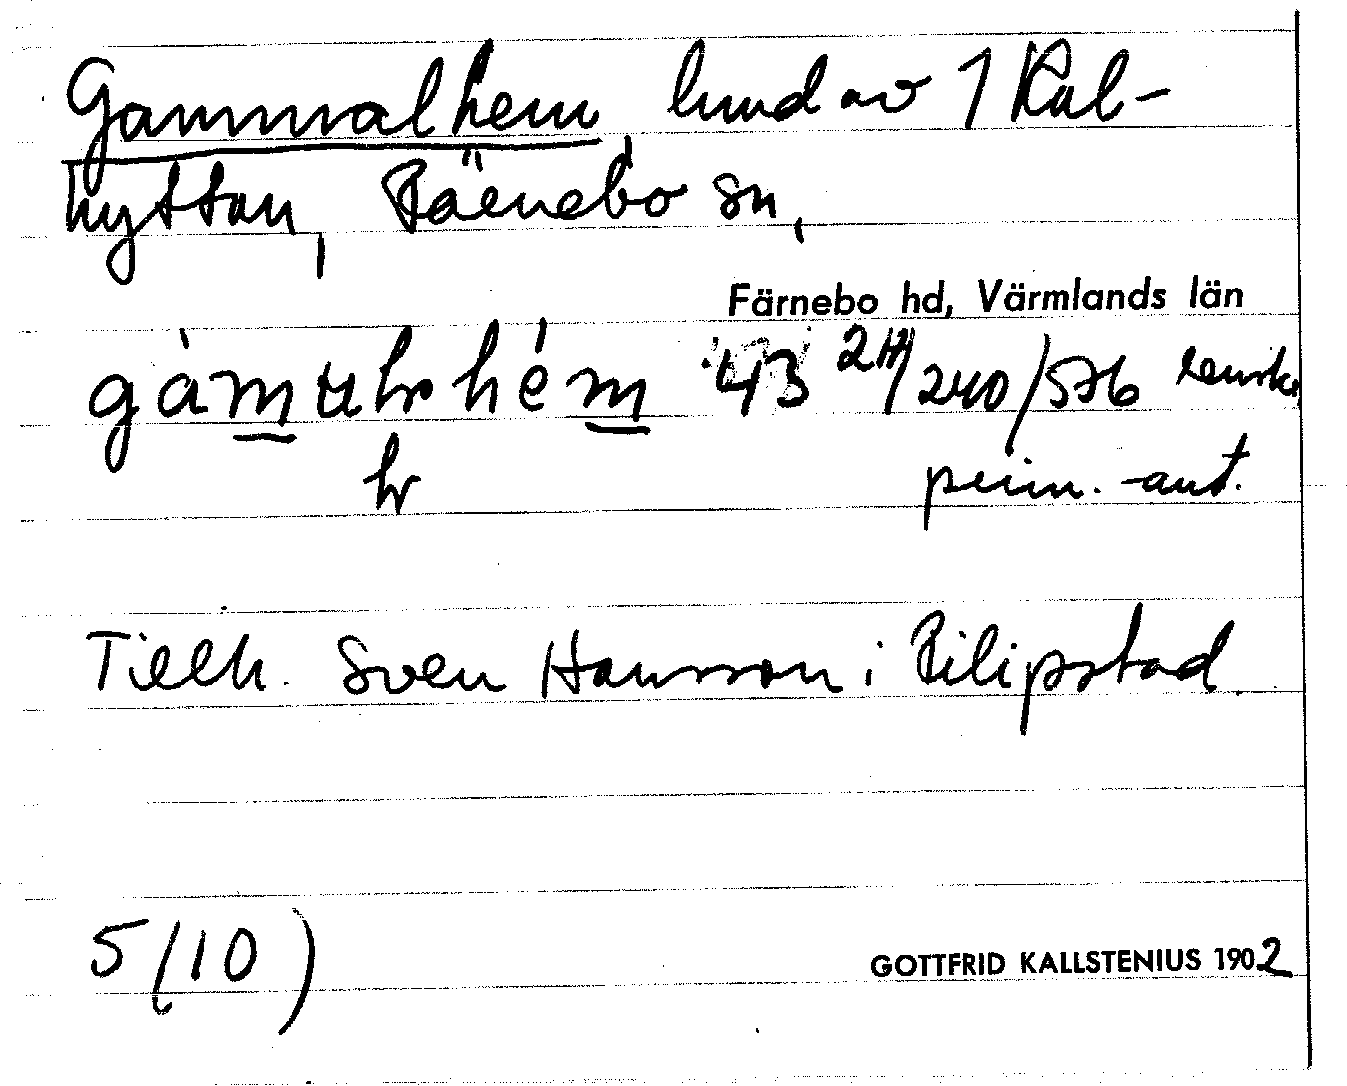 Gammalhem, lund av 1 Kal-
hyttan, Färnebo sn,
Färnebo hd, Värmlands län
43 240/576
Tillh. Sven Hansson i Filipstad.
5(10)
GOTTFRID KALLSTENIUS 1902